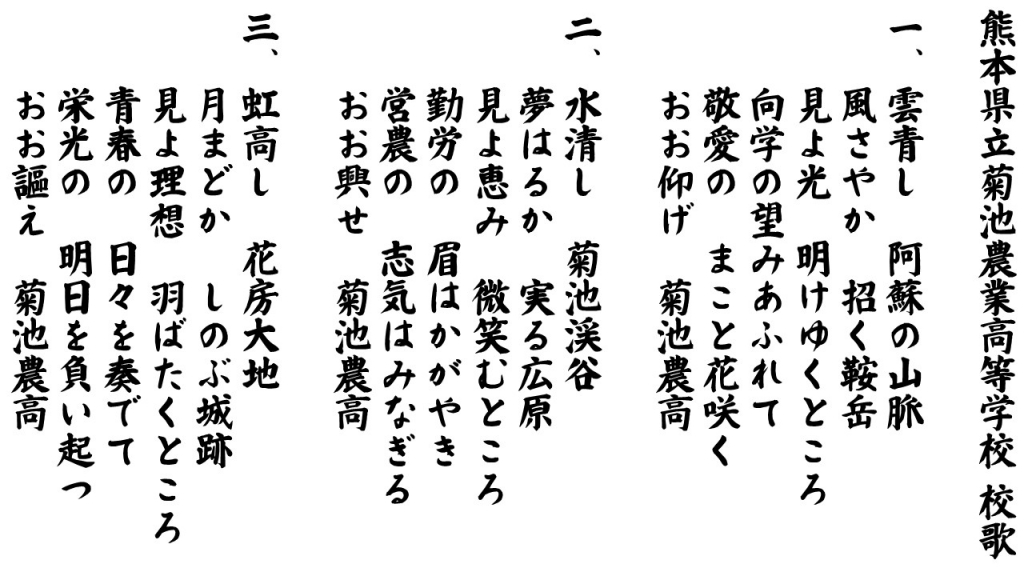 熊本県立菊池農業高等学校 校歌
一、
雲青し 阿蘇の山脈
風さやか 招く鞍岳
見よ光 明けゆくところ
向学の望みあふれて
敬愛の まこと花咲く
おお仰げ 菊池農高
二、
水清し 菊池渓谷
夢はるか 実る広原
見よ恵み 微笑むところ
勤労の 眉はかがやき
営農の 志気はみなぎる
おお興せ 菊池農高
三、
虹高し 花房大地
月まどか しのぶ城跡
見よ理想 羽ばたくところ
青春の 日々を奏でて
栄光の 明日を負い起つ
おお謳え 菊池農高